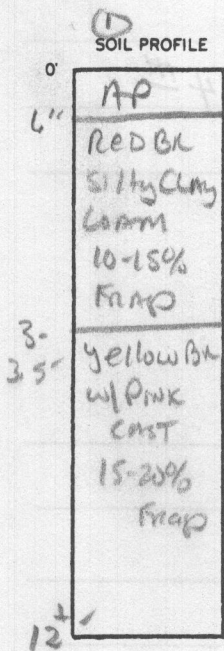 ①
SOIL PROFILE
0'
AP
6"
Red BR
Silty Clay
Loam
10-15%
Frag
3-
3.5'
yellow BR
w/ Pink
cast
15-20%
Frag
12+'